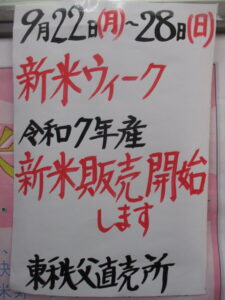 9月22日(月)～28日(日)
新米ウィーク
令和7年産
新米販売開始
します
東秩父直売所